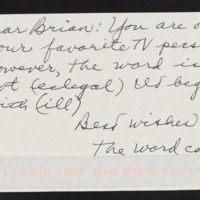 ar Brian: You are o
our favorite TV pers
owever, the word is
ot (eslegal) It beg
ith (ill)
Best wishes
The word co